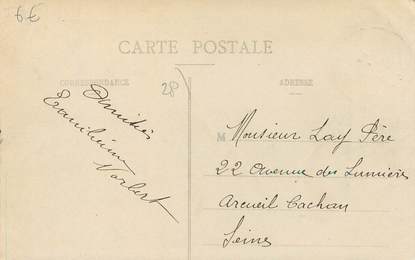 6€
CARTE POSTALE
CORRESPONDANCE
ADRESSE
28
Amitiés
Norbert
M
Monsieur Lay Père
22 Avenue des Lumières
Arcueil Cachan
Seine